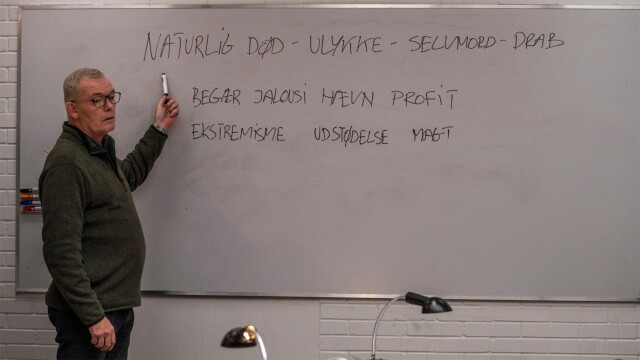 NATURLIG DØD - ULYKKE - SELVMORD - DRAB
BEGÆR JALOUSI HÆVN PROFIT
EKSTREMISME UDSTØDELSE MAGT